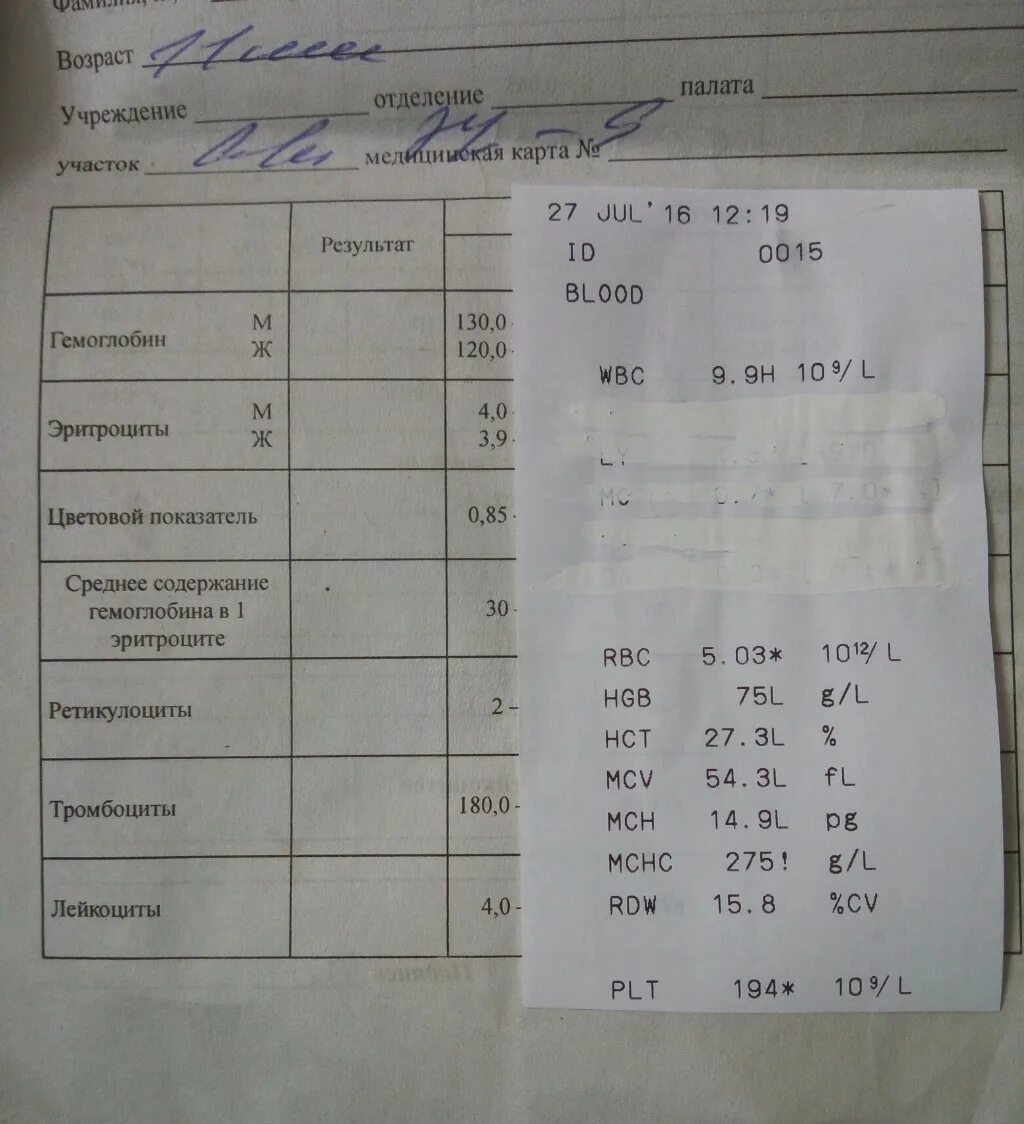 Фамилия,
Возраст 11 мес
Учреждение отделение палата
участок медицинская карта №
Результат
Гемоглобин М Ж 130,0 120,0
Эритроциты М Ж 4,0 3,9
Цветовой показатель 0,85
Среднее содержание
гемоглобина в 1
эритроците
30
Ретикулоциты 2 –
Тромбоциты 180,0
Лейкоциты 4,0
27 JUL'16 12:19
ID 0015
BLOOD
WBC 9.9H 10⁹/L
LY
RBC 5.03* 10¹²/L
HGB 75L g/L
HCT 27.3L %
MCV 54.3L fL
MCH 14.9L pg
MCHC 275! g/L
RDW 15.8 %CV
PLT 194* 10⁹/L